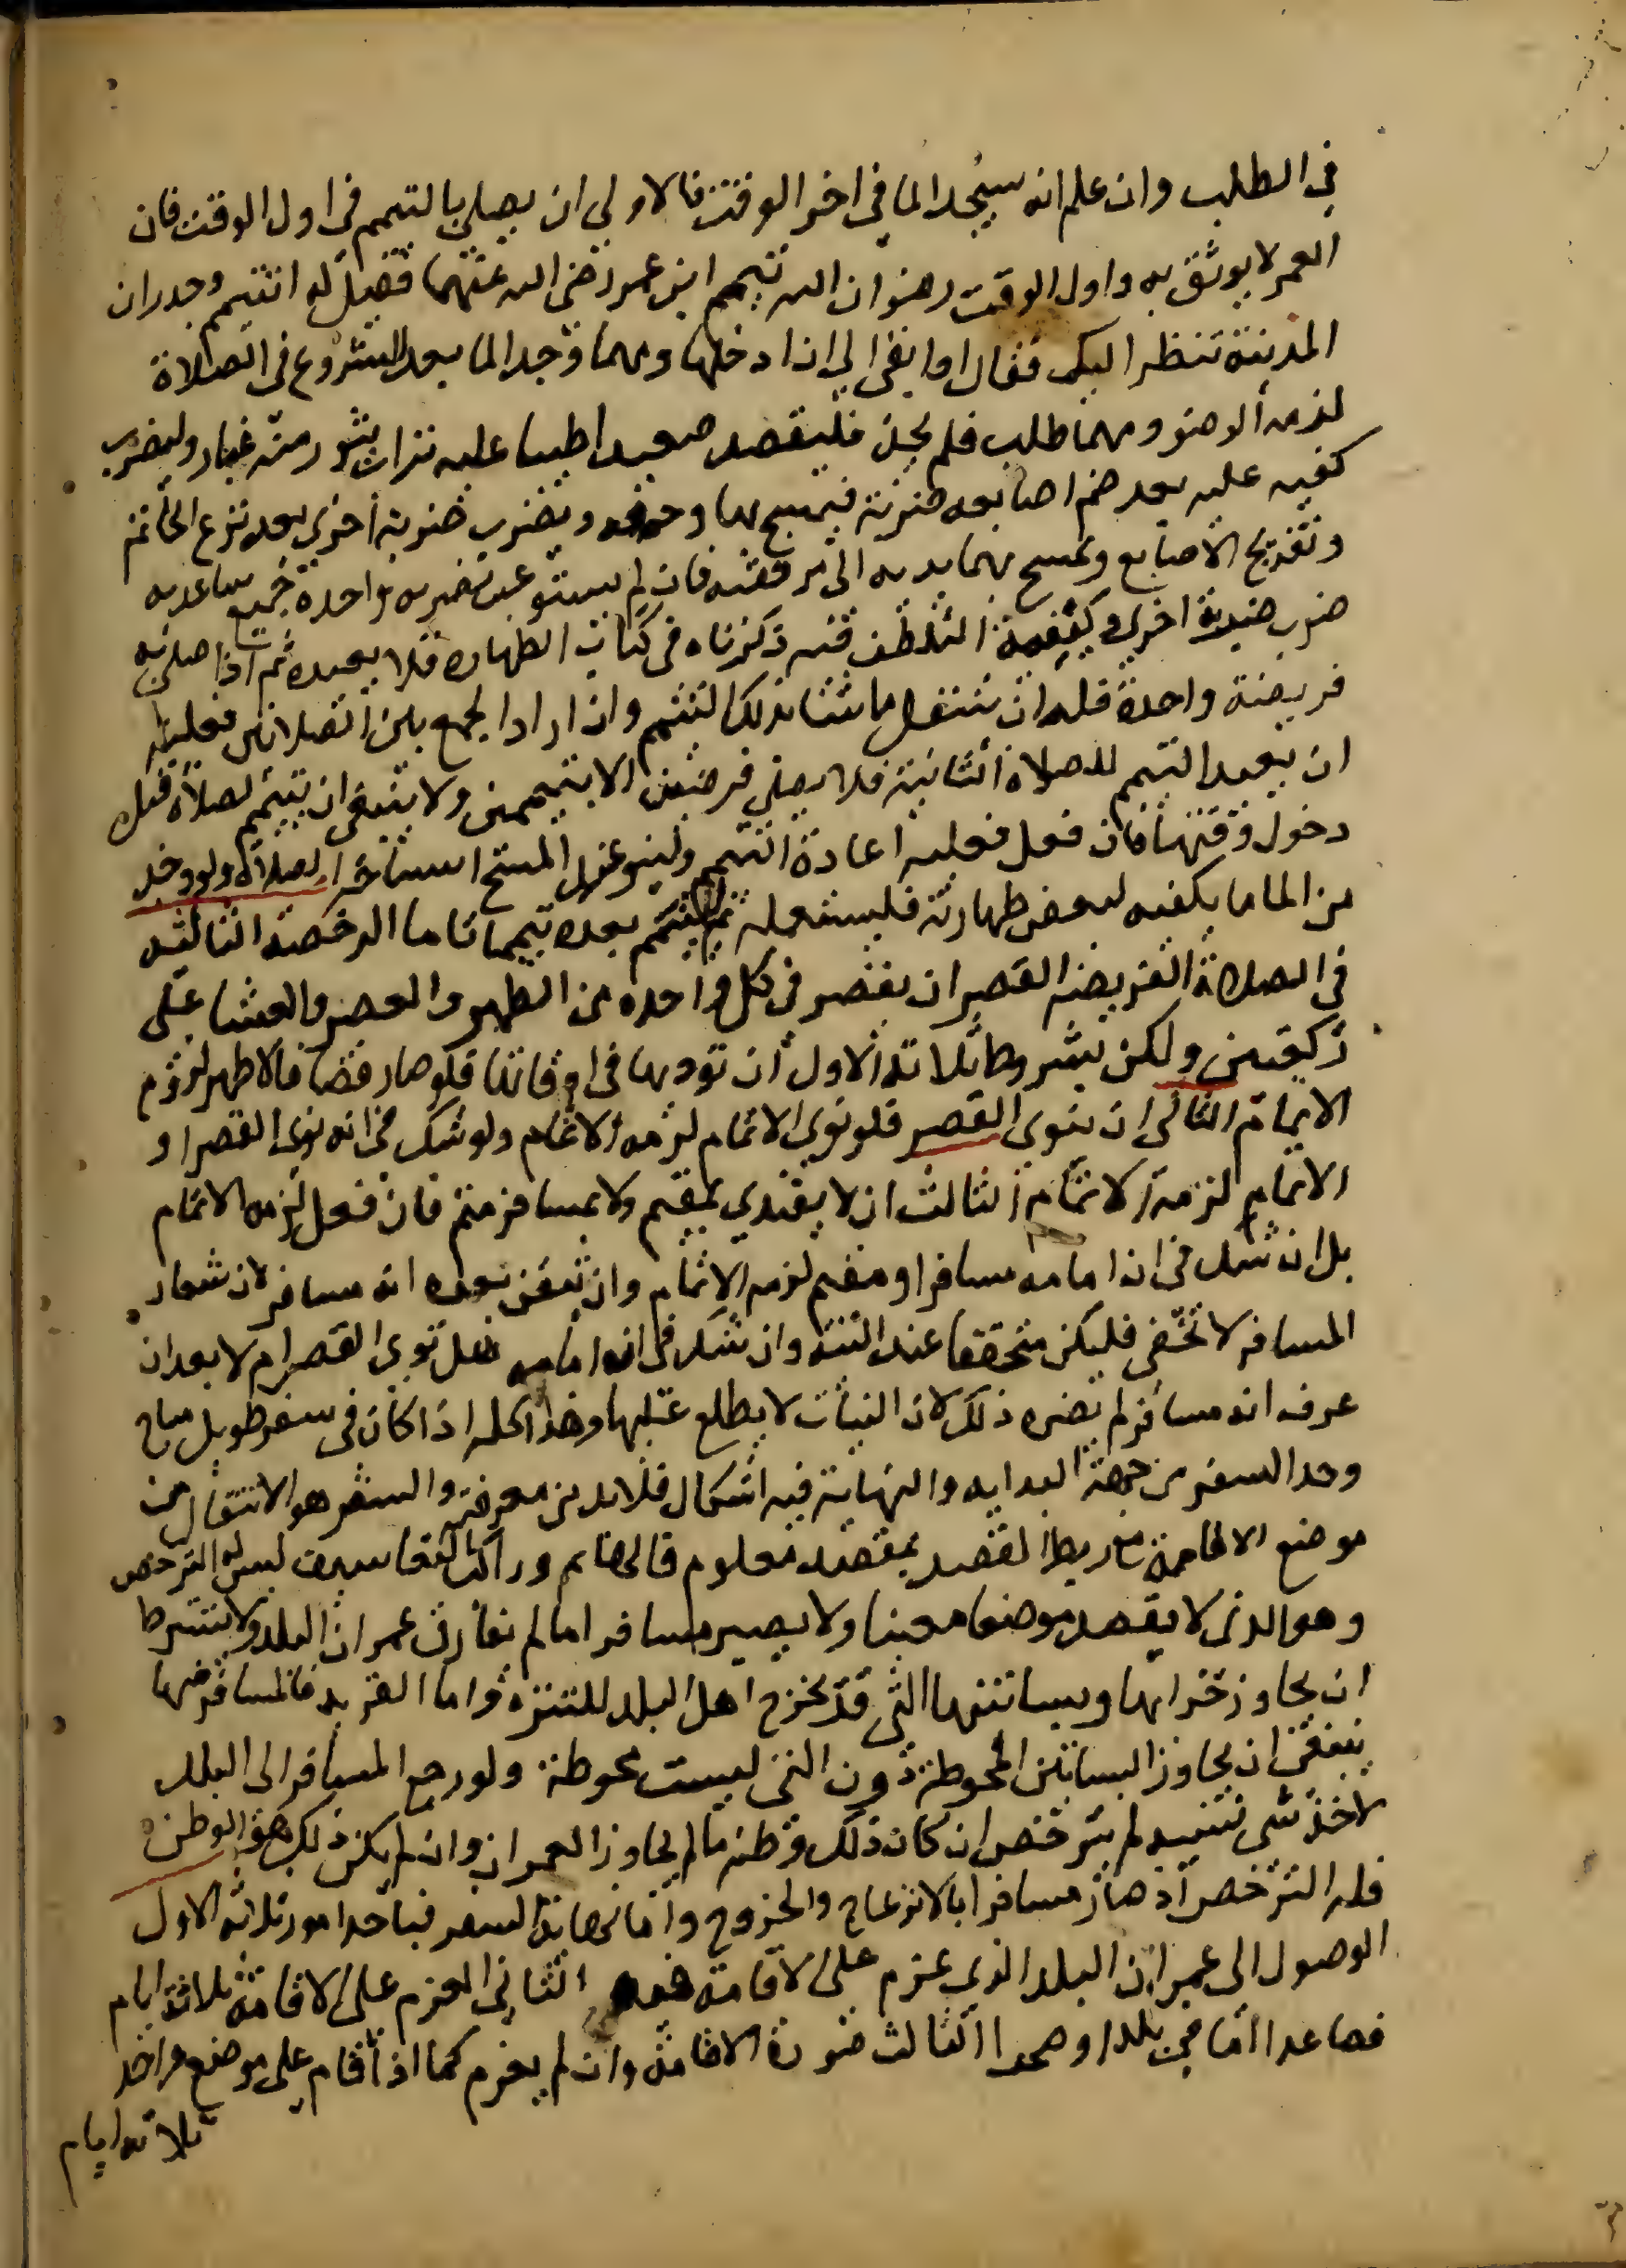 في الطلب وان علم انه سيجد الما في اخر الوقت فالاولى ان يصلي بالتيمم في اول الوقت فان
العمر لا يوثق به واول الوقت رضوان الله تيمم ابن عمر رضى الله عنهما فقيل له اتتيمم وجدران
المدينة تنظر اليك فقال اوابقى الى ان ادخلها ومهما وجد الما بعد الشروع في الصلاة
لزمه الوضو ومهما طلب فلم يجد فليقصد صعيدا طيبا عليه تراب يثور منه غبار وليضرب
كفيه عليه بعد ضم اصابعه ضربة فيمسح بها وجهه ويضرب ضربة اخرى بعد نزع الخاتم
وتفريج الاصابع ويمسح بهما يديه الى مرفقيه فان لم يستوعب بضربه واحدة جميع ساعديه
ضرب ضربة اخرى وكيفية التلطف فيه ذكرناه في كتاب الطهاره فلا يعيده ثم اذا صلى به
فريضة واحدة فله ان يتنفل ما شا بذلك التيمم وان اراد الجمع بين الصلاتين فعليه
ان يعيد التيمم للصلاة الثانية فلا يصلي فرضين الا بتيممين ولا ينبغى ان يتيمم لصلاة قبل
دخول وقتها فان فعل فعليه اعادة التيمم ولينو عند المسح استباحة الصلاة ولو وجد
من الما ما يكفيه لبعض طهارته فليستعمله ثم ليتيمم بعده تيمما تاما الرخصة الثالثه
في الصلاة الفريضه القصر ان يقصر في كل واحده من الظهر والعصر والعشا على
ركعتين ولكن بشروط ثلاثة الاول ان توديها في اوقاتها فلو صار قضا فالاظهر لزوم
الاتمام الثانى ان ينوى القصر فلو نوى الاتمام لزمه الاتمام ولو شك فى انه نوى القصر او
الاتمام لزمه الاتمام الثالث ان لا يقتدي بمقيم ولا بمسافر متم فان فعل لزمه الاتمام
بل ان شك في ان امامه مسافر او مقيم لزمه الاتمام وان تيقن بعده انه مسافر لان شعار
المسافر لا تخفى فليكن متحققا عند النيه وان شك في ان امامه هل نوى القصر ام لا بعد ان
عرف انه مسافر لم يضره ذلك لان النيات لا يطلع عليها وهذا كله اذا كان في سفر طويل مباح
وحد السفر من جهة البدايه والنهاية فيه اشكال فلا بد من معرفته والسفر هو الانتقال من
موضع الاقامة مع ربط القصد بمقصد معلوم فالهايم وراكب التعاسيف ليس له الترخص
وهو الذى لا يقصد موضعا معينا ولا يصير مسافرا ما لم يفارق عمران البلد ولا يشترط
ان يجاوز خرابها وبساتينها التى قد يخرج اهل البلد للتنزه واما القريه فالمسافر منها
ينبغى ان يجاوز البساتين المحوطة دون التى ليست محوطة ولو رجع المسافر الى البلد
لاخذ شى نسيه لم يترخص ان كان ذلك وطنه ما لم يجاوز العمران وان لم يكن ذلك هو الوطن
فله الترخص اذ صار مسافرا بالانزعاج والخروج واما نهاية السفر فباحد امور ثلاثه الاول
الوصول الى عمران البلد الذي عزم على الاقامة فيه الثاني العزم على الاقامة ثلاثة ايام
فصاعدا اما في بلد او صحرا الثالث صورة الاقامة وان لم يعزم كما اذا اقام على موضع واحد
ثلاثه ايام